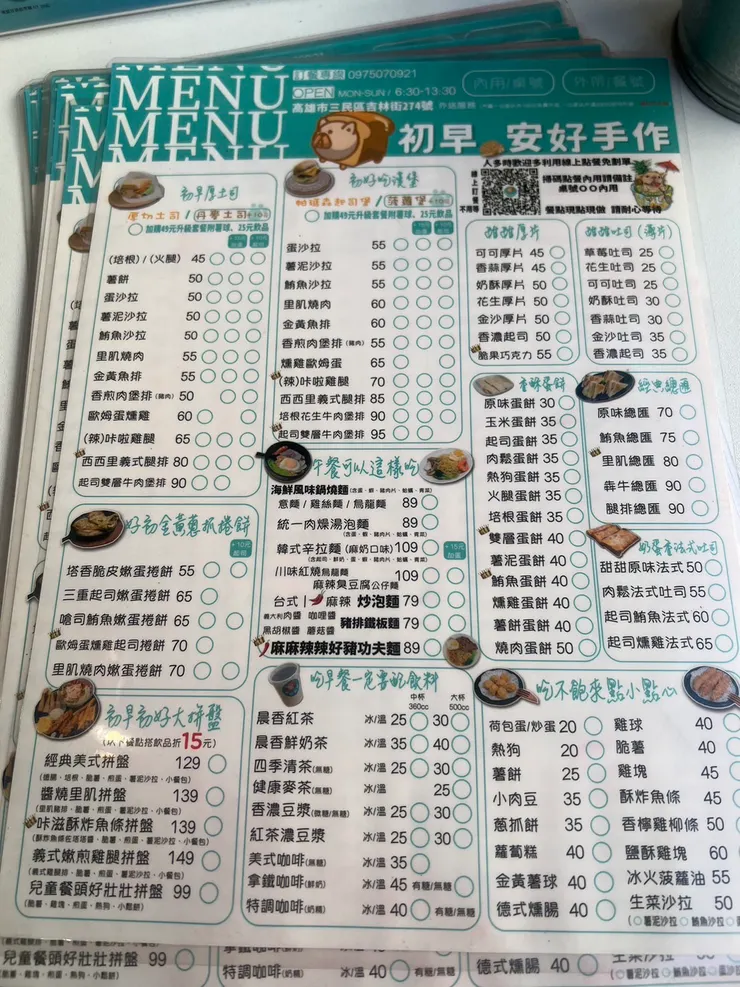 MENU
MENU
MENU
訂餐專線 0975070921
OPEN MON-SUN / 6:30-13:30
高雄市三民區吉林街274號
內用/桌號
外帶/餐號
初早 安好手作
人多時歡迎多利用線上點餐免劃單
掃碼點餐內用請備註
桌號OO內用
餐點現點現做 請耐心等待
初早厚土司
厚切土司 / 丹麥土司+10元
加購49元升級套餐附薯球、25元飲品
(培根) / (火腿) 45
薯餅 50
蛋沙拉 50
薯泥沙拉 50
鮪魚沙拉 50
里肌燒肉 55
金黃魚排 55
香煎肉堡排(豬肉) 50
歐姆蛋燻雞 60
(辣)咔啦雞腿 65
西西里義式腿排 80
起司雙層牛肉堡排 90
初好吃漢堡
帕瑪森起司堡 / 菠蘿堡+10元
加購49元升級套餐附薯球、25元飲品
蛋沙拉 55
薯泥沙拉 55
鮪魚沙拉 55
里肌燒肉 60
金黃魚排 60
香煎肉堡排(豬肉) 55
燻雞歐姆蛋 65
(辣)咔啦雞腿 70
西西里義式腿排 85
培根花生牛肉堡排 90
起司雙層牛肉堡排 95
甜甜厚片
可可厚片 45
香蒜厚片 45
奶酥厚片 50
花生厚片 50
金沙厚片 50
香濃起司 50
脆果巧克力 55
甜甜吐司(薄片)
草莓吐司 25
花生吐司 25
可可吐司 25
奶酥吐司 30
香蒜吐司 30
金沙吐司 35
香濃起司 35
香酥蛋餅
原味蛋餅 30
玉米蛋餅 35
起司蛋餅 35
肉鬆蛋餅 35
熱狗蛋餅 35
火腿蛋餅 35
培根蛋餅 35
雙層蛋餅 40
薯泥蛋餅 40
鮪魚蛋餅 40
燻雞蛋餅 40
薯餅蛋餅 40
燒肉蛋餅 50
經典總匯
原味總匯 70
鮪魚總匯 75
里肌總匯 80
犇牛總匯 90
腿排總匯 90
奶蛋香法式吐司
甜甜原味法式 50
肉鬆法式吐司 55
起司鮪魚法式 60
起司燻雞法式 65
好初金黃蔥抓捲餅
+10元
起司
塔香脆皮嫩蛋捲餅 55
三重起司嫩蛋捲餅 65
嗆司鮪魚嫩蛋捲餅 65
歐姆蛋燻雞起司捲餅 70
里肌燒肉嫩蛋捲餅 70
午餐可以這樣吃
海鮮風味鍋燒麵(含蛋、蝦、豬肉片、蛤蠣、青菜)
意麵 / 雞絲麵 / 烏龍麵 89
統一肉燥湯泡麵 89
(含蛋、蝦、豬肉片、蛤蠣、青菜)
韓式辛拉麵(麻奶口味) 109
(含起司、鮮奶、蛋、蝦、豬肉片、蛤蠣、青菜)
+15元
加蛋
川味紅燒烏龍麵
麻辣臭豆腐公仔麵 109
台式 | 麻辣 炒泡麵 79
義大利肉醬 咖哩醬
黑胡椒醬 蘑菇醬 豬排鐵板麵 79
麻麻辣辣好豬功夫麵 89
初早初好大拼盤
(以下餐點搭飲品折15元)
經典美式拼盤 129
(德腸、培根、脆薯、煎蛋、薯泥沙拉、小餐包)
醬燒里肌拼盤 139
(里肌豬排、脆薯、煎蛋、薯泥沙拉、小餐包)
咔滋酥炸魚條拼盤 139
(酥炸魚條佐塔塔醬、脆薯、煎蛋、薯泥沙拉、小餐包)
義式嫩煎雞腿拼盤 149
(義式雞腿排、脆薯、煎蛋、薯泥沙拉、小餐包)
兒童餐頭好壯壯拼盤 99
(脆薯、雞塊、煎蛋、熱狗、小鬆餅)
吃早餐一定要配飲料
中杯 大杯
360cc 500cc
晨香紅茶 冰/溫 25 30
晨香鮮奶茶 冰/溫 35 40
四季清茶(無糖) 冰/溫 25 30
健康麥茶(無糖) 冰/溫 25
香濃豆漿(微糖/無糖) 冰/溫 25 30
紅茶濃豆漿 冰/溫 25 30
美式咖啡(無糖) 冰/溫 35
拿鐵咖啡(鮮奶) 冰/溫 45 有糖/無糖
特調咖啡(奶精) 冰/溫 40 有糖/無糖
吃不飽來點小點心
荷包蛋/炒蛋 20
熱狗 20
薯餅 25
小肉豆 35
蔥抓餅 35
蘿蔔糕 40
金黃薯球 40
德式燻腸 40
雞球 40
脆薯 40
雞塊 45
酥炸魚條 45
香檸雞柳條 50
鹽酥雞塊 60
冰火菠蘿油 55
生菜沙拉 50
(薯泥沙拉 鮪魚沙拉
兒童餐頭好壯壯拼盤 99
(脆薯、雞塊、煎蛋、熱狗、小鬆餅)
特調咖啡(奶精) 冰/溫 40 有糖/無糖
德式燻腸 40